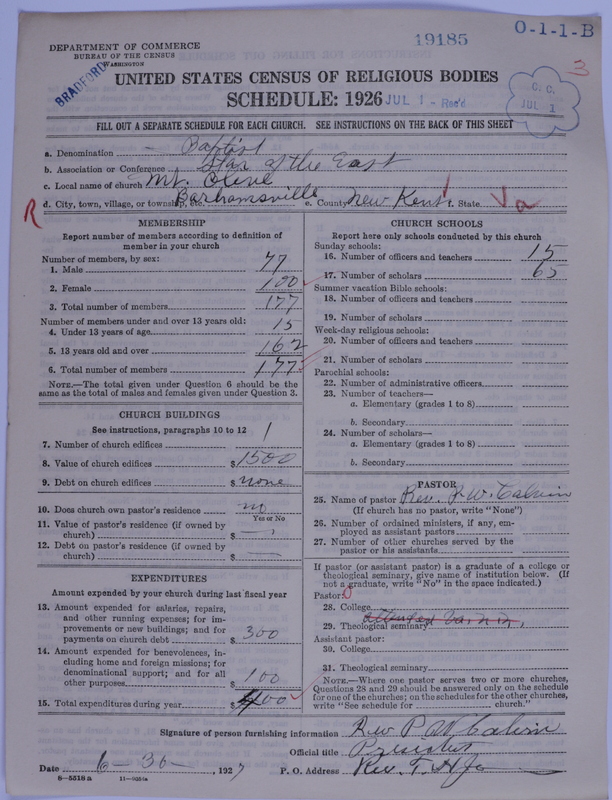 19185
O-1-1-B
DEPARTMENT OF COMMERCE
BUREAU OF THE CENSUS
WASHINGTON
BRADFORD
3
UNITED STATES CENSUS OF RELIGIOUS BODIES
SCHEDULE: 1926
JUL 1 - Rec'd
C. C.
JUL 1
FILL OUT A SEPARATE SCHEDULE FOR EACH CHURCH. SEE INSTRUCTIONS ON THE BACK OF THIS SHEET
a. Denomination Baptist
b. Association or Conference Star of the East
c. Local name of church Mt. Olive
d. City, town, village, or township, etc. Barhamsville e. County New Kent f. State Va
R
MEMBERSHIP
Report number of members according to definition of
member in your church
Number of members, by sex:
1. Male 77
2. Female 100
3. Total number of members 177
Number of members under and over 13 years old:
4. Under 13 years of age 15
5. 13 years old and over 162
6. Total number of members 177
NOTE.—The total given under Question 6 should be
same as the total of males and females given under Question 3.
CHURCH BUILDINGS
See instructions, paragraphs 10 to 12
7. Number of church edifices 1
8. Value of church edifices $1500
9. Debt on church edifices $none
10. Does church own pastor's residence? no
Yes or No
11. Value of pastor's residence (if owned by
church) $ —
12. Debt on pastor's residence (if owned by
church) $ —
EXPENDITURES
Amount expended by your church during last fiscal year
13. Amount expended for salaries, repairs,
and other running expenses; for im-
provements or new buildings; and for
payments on church debt $300
14. Amount expended for benevolences, in-
cluding home and foreign missions; for
denominational support; and for all
other purposes $100
15. Total expenditures during year $400
CHURCH SCHOOLS
Report here only schools conducted by this church
Sunday schools:
16. Number of officers and teachers 15
17. Number of scholars 65
Summer vacation Bible schools:
18. Number of officers and teachers
19. Number of scholars
Week-day religious schools:
20. Number of officers and teachers
21. Number of scholars
Parochial schools:
22. Number of administrative officers
23. Number of teachers—
a. Elementary (grades 1 to 8)
b. Secondary
24. Number of scholars—
a. Elementary (grades 1 to 8)
b. Secondary
PASTOR
25. Name of pastor Rev. P. W. Calvin
(If church has no pastor, write "None")
26. Number of ordained ministers, if any, em-
ployed as assistant pastors
27. Number of other churches served by the
pastor or his assistants
If pastor (or assistant pastor) is a graduate of a college or
theological seminary, give name of institution below. (If
not a graduate, write "No" in the space indicated.)
Pastor: 0
28. College
29. Theological seminary attended Va.
Assistant pastor:
30. College
31. Theological seminary
NOTE.—Where one pastor serves two or more churches,
Questions 28 and 29 should be answered only on the schedule
for one of the churches; on the schedules for the other churches,
write "See schedule for church."
Signature of person furnishing information Rev P W Calvin
Official title
Date 6-30-, 1927 P. O. Address
8-5518a 11-9084a